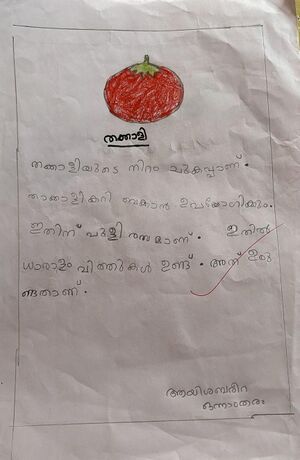 തക്കാളി
തക്കാളിയുടെ നിറം ചുകപ്പാണ്.
താക്കാളികറി ബകാൻ ഉപയോഗിക്കും.
ഇതിന് പുളി രസമാണ്. ഇതിൽ
ധാരാളം വിത്തുകൾ ഉണ്ട്. അത് ഉരു
ണ്ടതാണ്.
ആയിശബരീറ
ഒന്നാംതരം